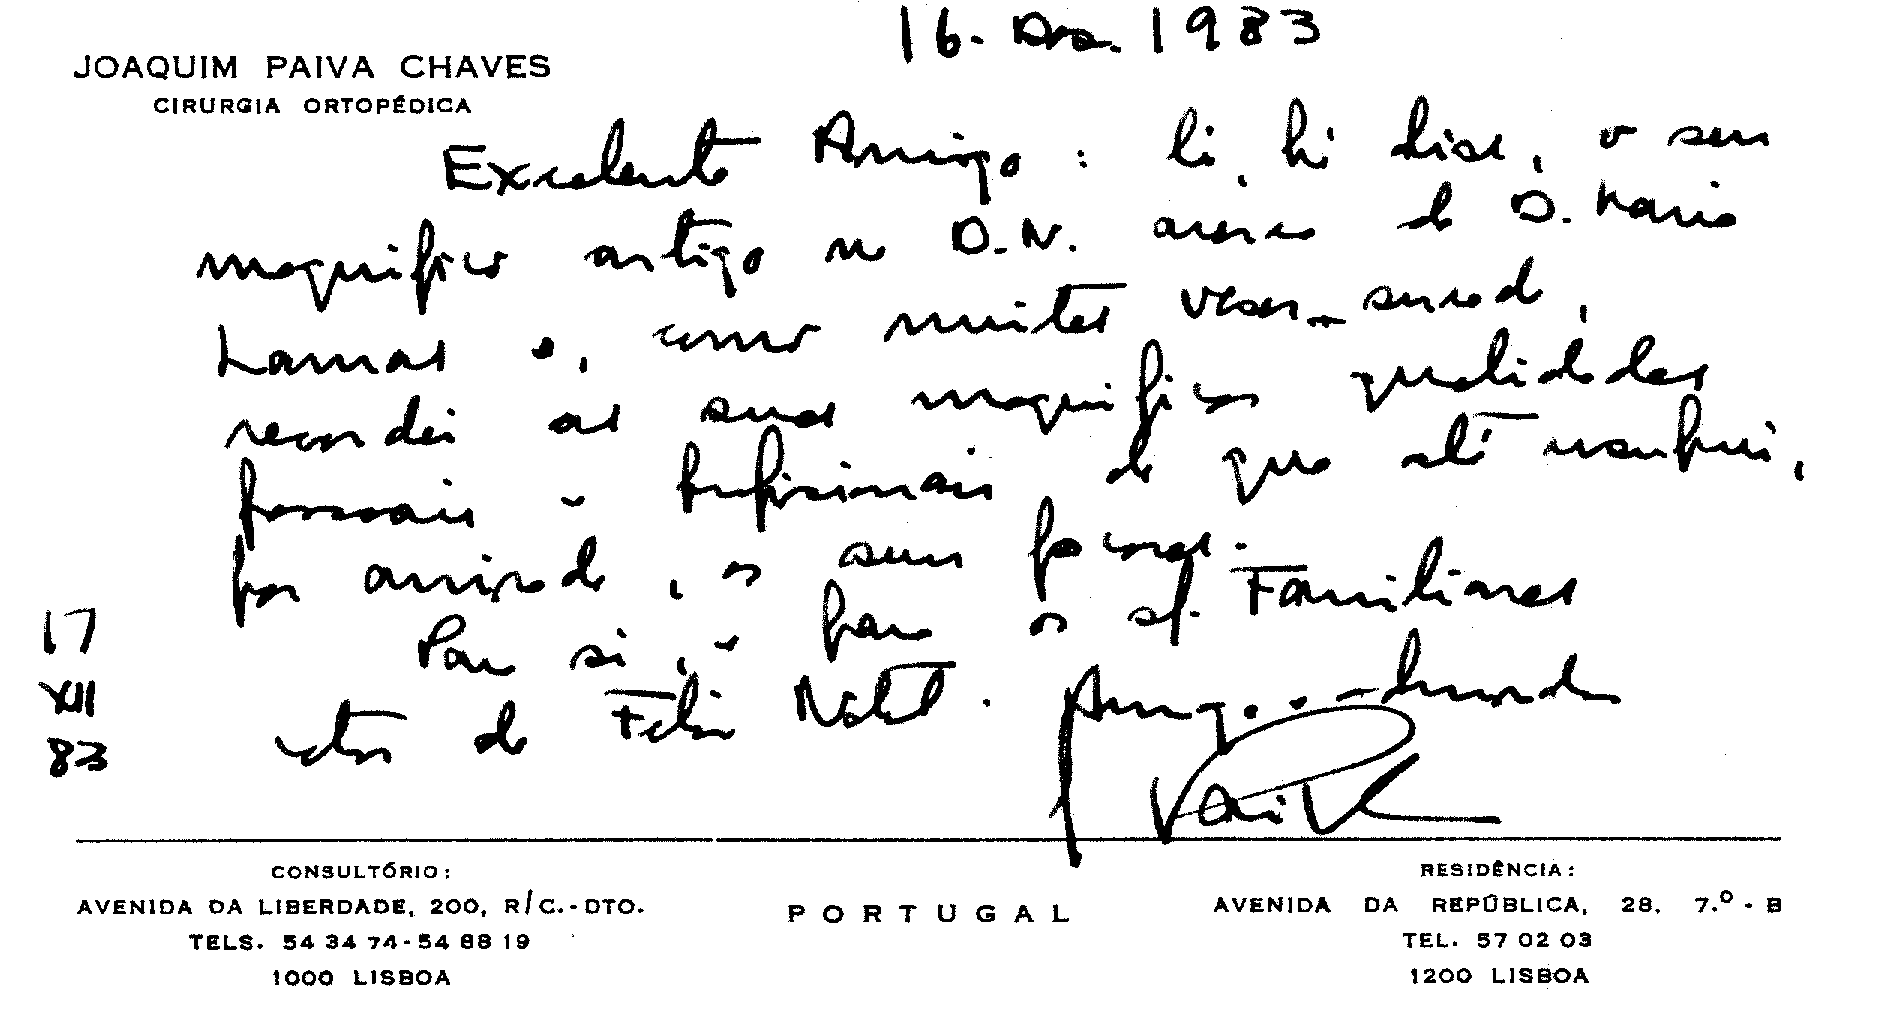 16. Dez. 1983
JOAQUIM PAIVA CHAVES
CIRURGIA ORTOPÉDICA
Excelente Amigo: li, hi hoje, o seu
magnífico artigo no D.N. acerca de D. Maria
Lamas e, como muitas vezes sucede,
recordei as suas magníficas qualidades
pessoais e profissionais de que até usufrui,
por amizade, os seus favores.
Para si, e para os s/. Familiares
votos de Feliz Natal. Amigo
Paiva
17
XII
83
CONSULTÓRIO:
AVENIDA DA LIBERDADE, 200, R/C.-DTO.
TELS. 54 34 74-54 88 19
1000 LISBOA
PORTUGAL
RESIDÊNCIA:
AVENIDA DA REPÚBLICA, 28, 7.º - B
TEL. 57 02 03
1200 LISBOA